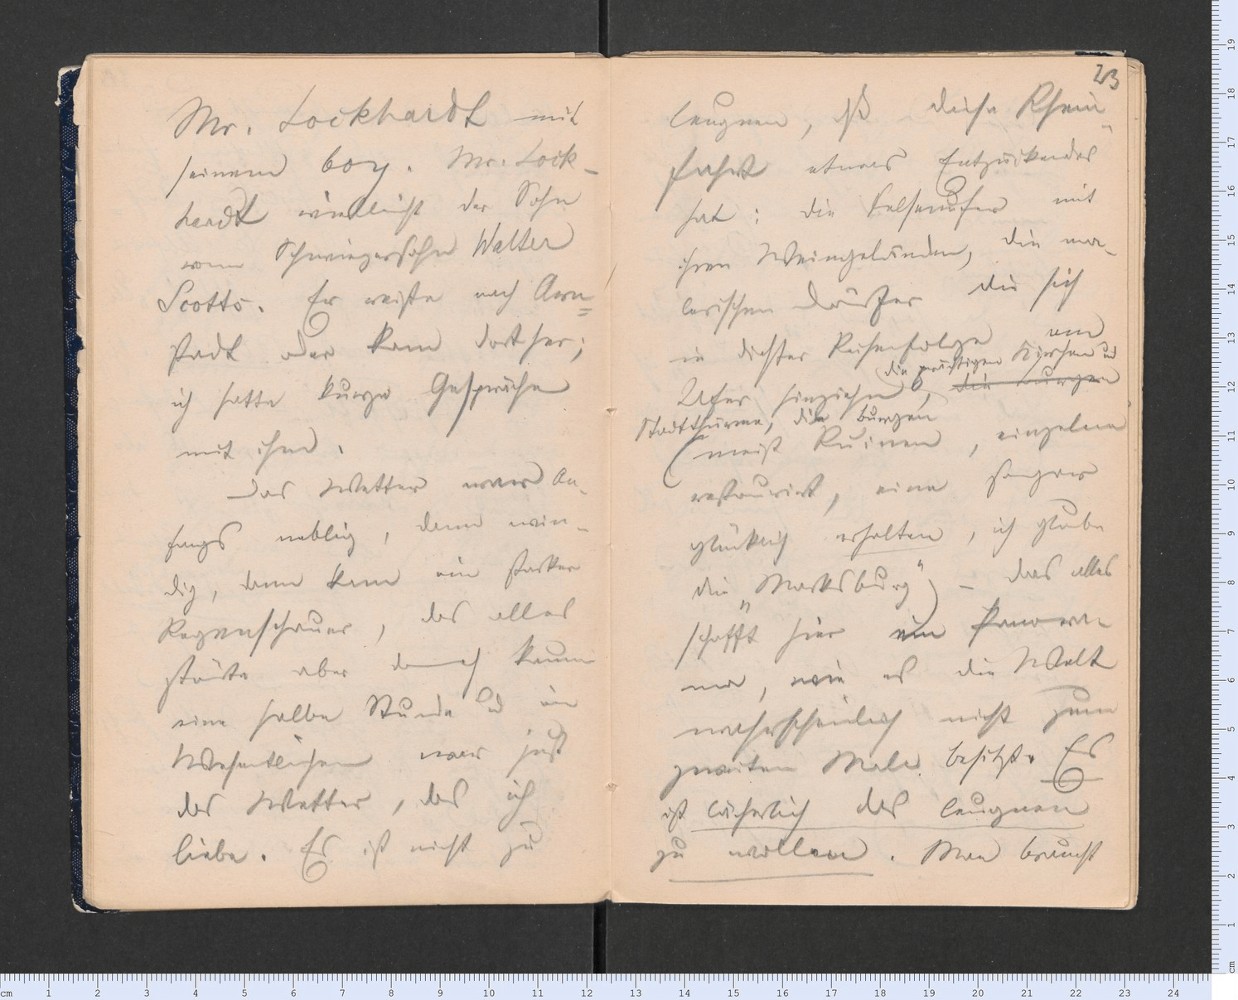 Mr. Lockhardt mit
seinem boy. Mr. Lock-
hardt vielleicht der Sohn
vom Schwiegersohn Walter
Scotts. Er reiste nach Arn-
stadt oder kam dort her;
ich hatte kurze Gespräche
mit ihm.
Das Wetter war An-
fangs neblig, dann win-
dig, dann kam ein starker
Regenschauer, das alles
störte aber kaum
eine halbe Stunde und im
Wesentlichen war just
das Wetter, das ich
liebe. Es ist nicht zu
23
leugnen, daß diese Rhein-
fahrt etwas Entzückendes
hat: die Felsenufer mit
ihren Weingeländen, die ma-
lerischen Dörfer die sich
in dichter Reihenfolge am
Ufer hinziehn, die Burgen
die prächtigen Kirchen und
Stadtthürme, die Burgen
(meist Ruinen, einzelne
restaurirt, eine sogar
glücklich erhalten, ich glaube
die „Marksburg") – das alles
schafft hier ein Panora-
ma, wie es die Welt
wahrscheinlich nicht zum
zweiten Male besitzt. Es
ist lächerlich das leugnen
zu wollen. Man braucht